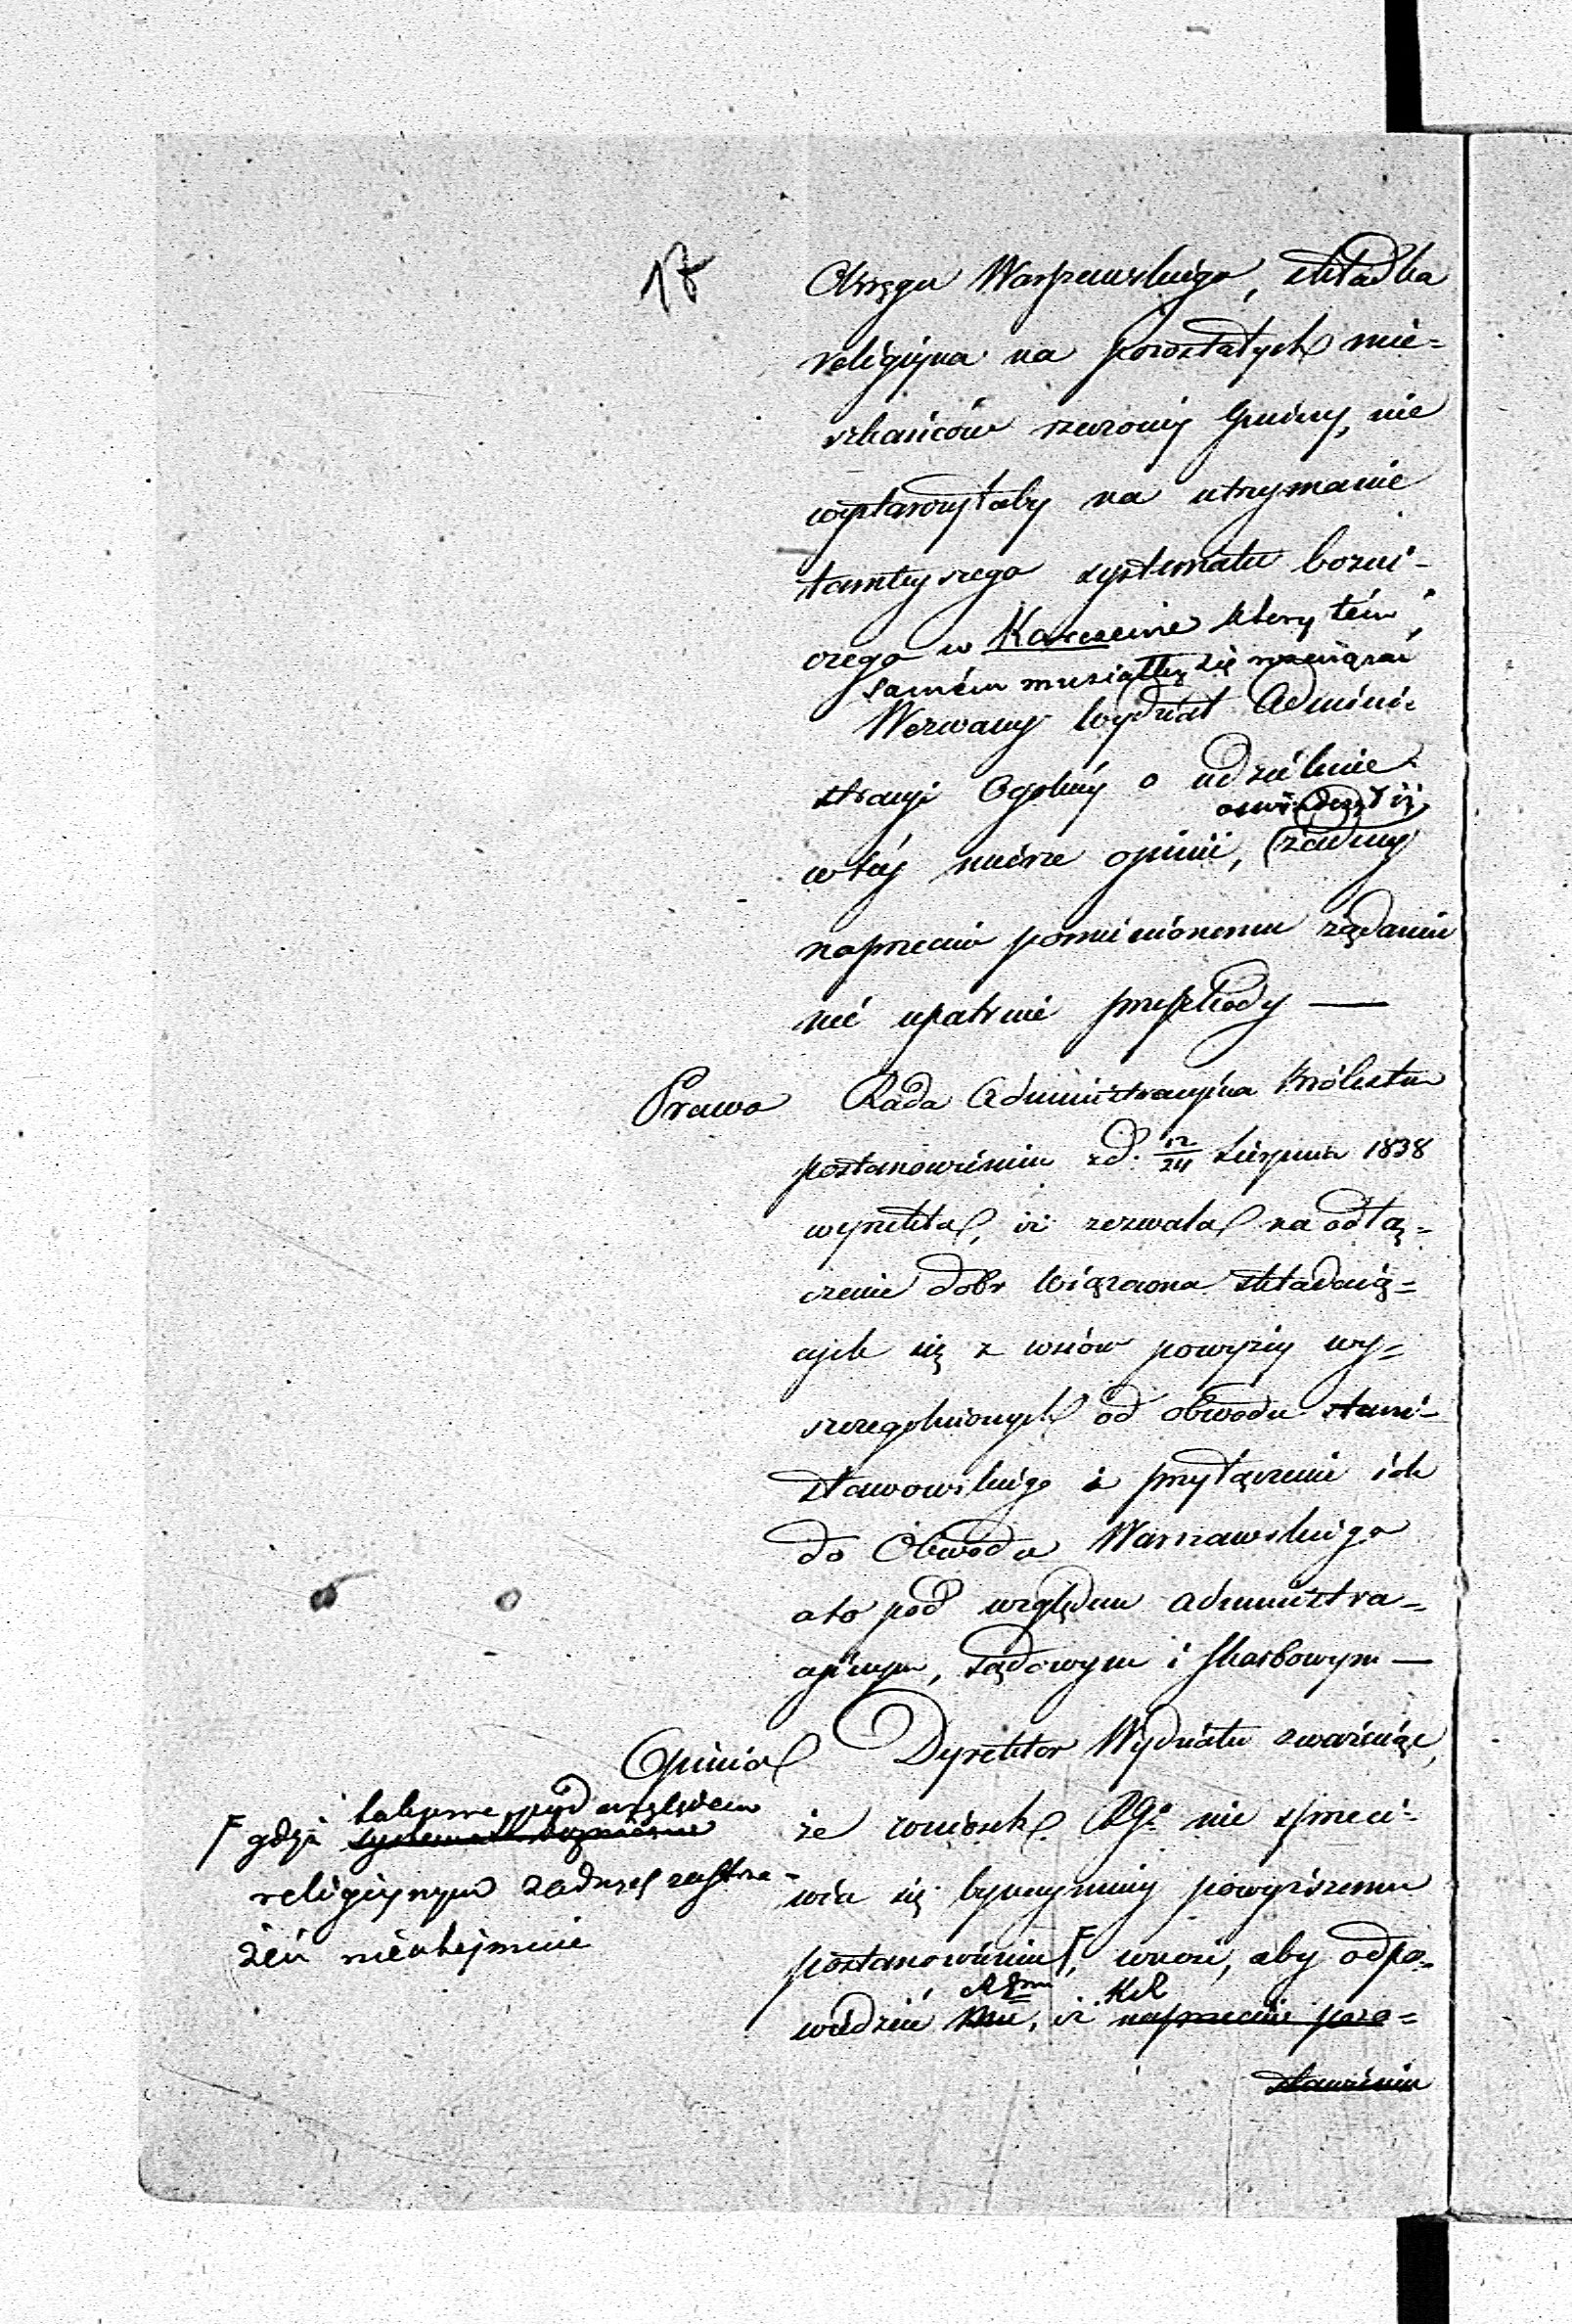 17
Okręgu Warszawskiego, składka
religijna na pozostałych mie=
szkańców rzeczonéj Gminy, nie
wystarczyłaby na utrzymanie
tamteyszego systematu bożni-
czego w Karczewie który tém
samém musiałby się rozwiązać
Wezwany Wydział Admini-
stracyi Ogólnéj o udzielenie
oświadczył iż
w téj mierze opinii, żadnéy
naprzeciw pomienionemu żądaniu
nie upatruie przeszkody —
Prawo Rada Administracyjna Królestwa
postanowieniem z d. 12/24 Sierpnia 1838
wyrzekła, iż zezwala na odłą=
czenie dóbr Wiązowna składaią=
cych się z wsiów powyżéy wy=
szczególnionych od obwodu stani-
sławowskiego i przyłączenie ich
do Obwodu Warszawskiego
a to pod względem administra-
cyinym, sądowym i skarbowym —
Opinia Dyrektor Wydziału zważaiąc,
że wniosek RG. nie sprzeci-
wia się bynaymniéy powyższemu
postanowieniu F, wnosi, aby odpo-
wiedzieć, iż naprzeciw posta=
nowieniu
F gdyż takowe pod względem
systemat bożniczne
religijnym żadnych zastrze-
żeń nieobejmuie